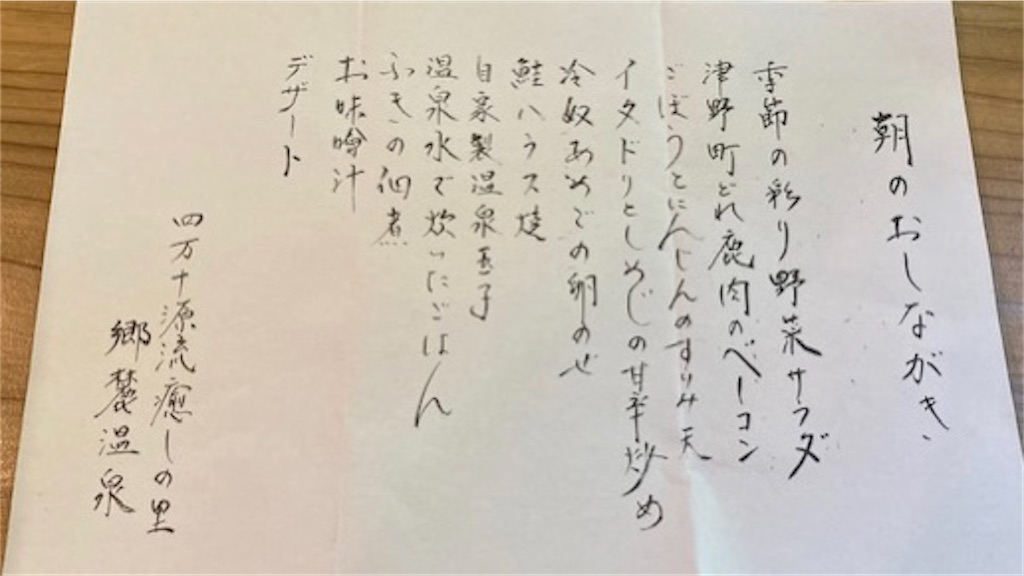 朝のおしながき
季節の彩り野菜サラダ
津野町どれ鹿肉のベーコン
ごぼうとにんじんのすりみ天
イタドリとしめじの甘辛炒め
冷奴あめごの卵のせ
鮭ハラス焼
自家製温泉玉子
温泉水で炊いたごはん
ふきの佃煮
お味噌汁
デザート
四万十源流癒しの里
郷麓温泉